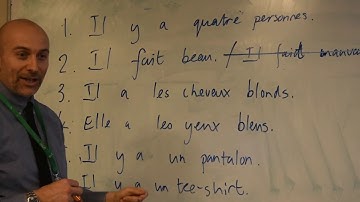 1. Il y a quatre personnes.
2. Il fait beau. / Il fait mauvais
3. Il a les cheveux blonds.
4. Elle a les yeux bleus.
Il y a un pantalon.
Il y a un tee-shirt.